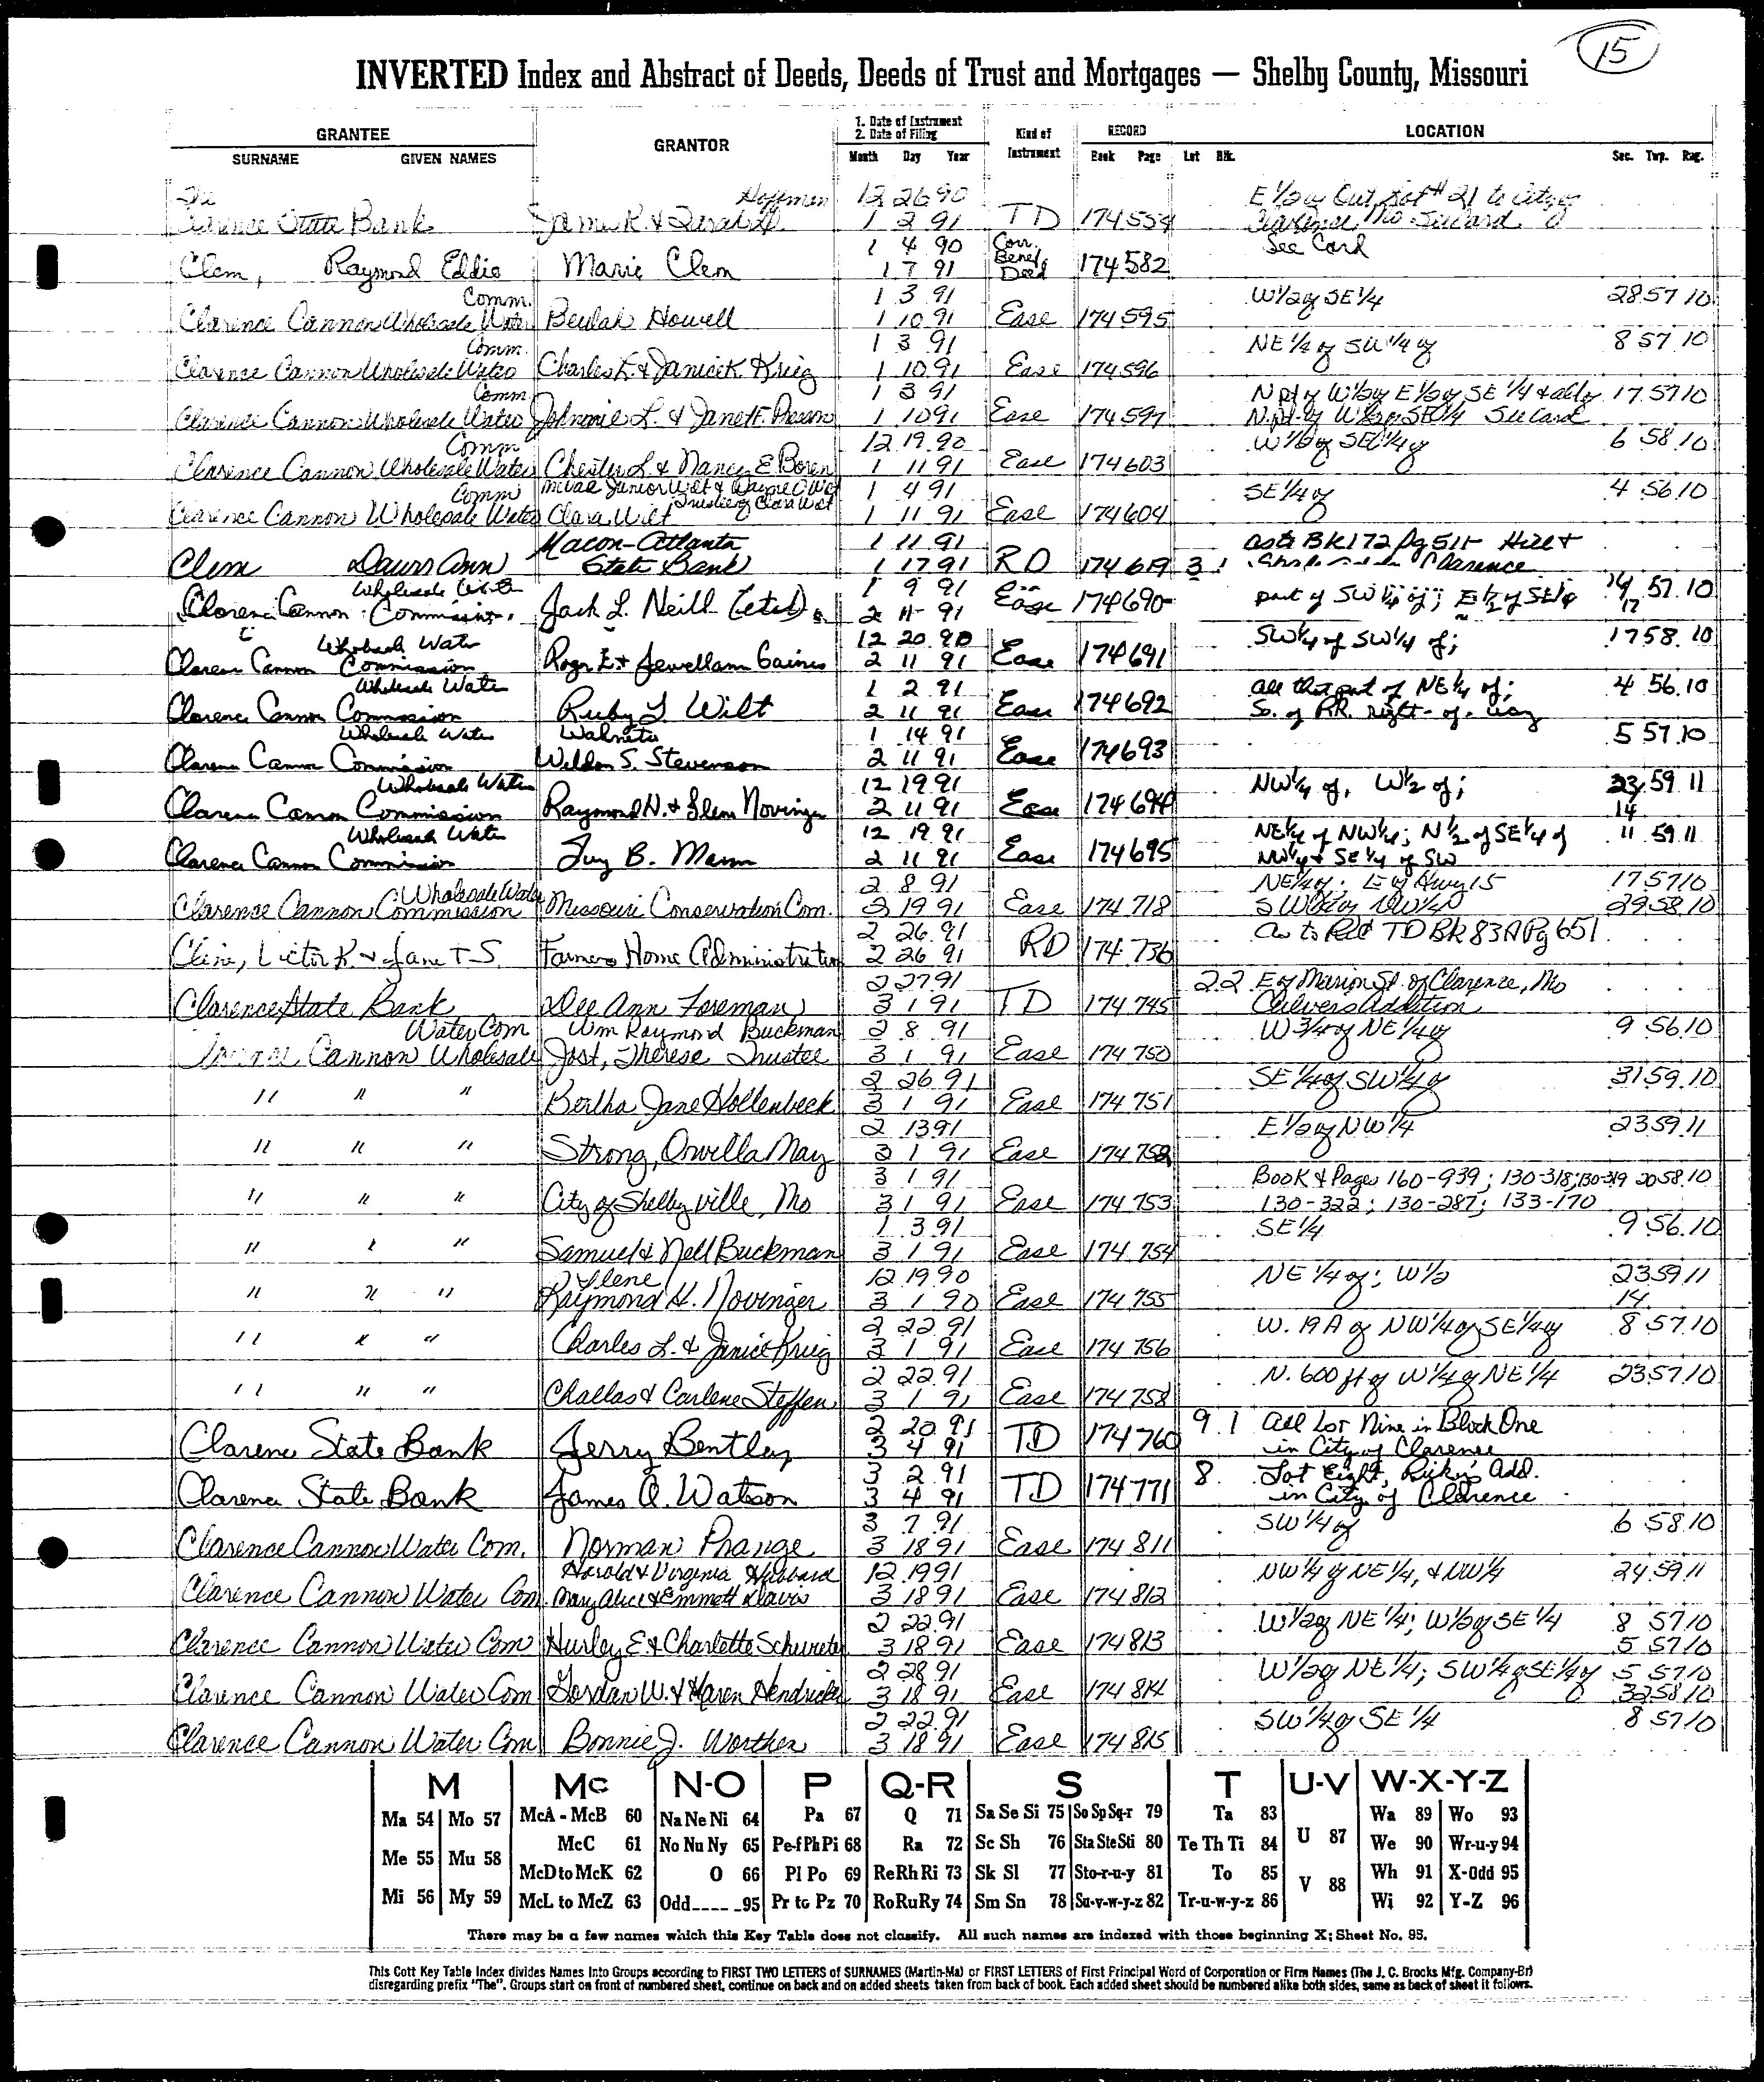 15
INVERTED Index and Abstract of Deeds, Deeds of Trust and Mortgages — Shelby County, Missouri
GRANTEE GRANTOR 1. Date of Instrument 2. Date of Filing Kind of Instrument RECORD LOCATION
SURNAME GIVEN NAMES Month Day Year Book Page Lot Blk. Sec. Twp. Rag.
Hoffman 12 26 90 E 1/2 of Out Lot # 21 to City of
State Bank James K & 1 2 91 TD 174 554 Clarence Mo. See Card
Clem, Raymond Eddie Marie Clem 1 4 90 Corr. Benef Deed 174 582 See Card
1 7 91
Comm. 1 3 91 W 1/2 of SE 1/4 28 57 10
Clarence Cannon Wholesale Water Beulah Howell 1 10 91 Ease 174 595
Comm. 1 3 91 NE 1/4 of SW 1/4 of 8 57 10
Clarence Cannon Wholesale Water Charles L. & Janice K. Krieg 1 10 91 Ease 174 596
Comm. 1 3 91 N pt of W 1/2 of E 1/2 of SE 1/4 & also 17 57 10
Clarence Cannon Wholesale Water Johnnie L. & Jane F. 1 10 91 Ease 174 597 N. pt. of W 1/2 of SE 1/4 See Card
Comm. 12 19 90 W 1/2 of SE 1/4 of 6 58 10
Clarence Cannon Wholesale Water Chester L. & Nancy E Boren 1 11 91 Ease 174 603
Comm Junior Wilt & Wayne O Wilt 1 4 91 SE 1/4 of 4 56 10
Clarence Cannon Wholesale Water Clara Wilt Trustee of Clara Wilt 1 11 91 Ease 174 604
Macon-Atlanta 1 11 91 as to BK 172 Pg 515 Hill &
Clem Ann State Bank 1 17 91 RD 174 619 3 1 Clarence
Wholesale Water 1 9 91 Ease 174 690 part of SW 1/4 of; E 1/2 of SE 1/4 14 57 10
Clarence Cannon Commission. Jack L. Neill (etal) 2 11 91 17
Wholesale Water 12 20 90 SW 1/4 of SW 1/4 of; 17 58 10
Clarence Cannon Commission Roger E. & Jewellann Gaines 2 11 91 Ease 174 691
Wholesale Water 1 2 91 all that part of NE 1/4 of; 4 56 10
Clarence Cannon Commission Ruby L Wilt 2 11 91 Ease 174 692 So. of RR. right-of-way
Wholesale Water Walneta 1 14 91 5 57 10
Clarence Cannon Commission Weldon S. Stevenson 2 11 91 Ease 174 693
Wholesale Water 12 19 91 NW 1/4 of, W 1/2 of; 23 59 11
Clarence Cannon Commission Raymond H. & Ilene Novinger 2 11 91 Ease 174 694 14
Wholesale Water 12 19 91 NE 1/4 of NW 1/4; N 1/2 of SE 1/4 of 11 59 11
Clarence Cannon Commission Guy B. Mann 2 11 91 Ease 174 695 NW 1/4 & SE 1/4 of SW
Wholesale Water 2 8 91 NE 1/4 of; E of Hwy 15 17 57 10
Clarence Cannon Commission Missouri Conservation Com. 2 19 91 Ease 174 718 SW 1/4 of NW 1/4 29 58 10
2 26 91 As to Rec TD Bk 83A Pg 651
Cline, Victor K. & Jane T.S. Farmers Home Administration 2 26 91 RD 174 736
2 27 91 2 2 E of Marion St. of Clarence, Mo
Clarence State Bank Dee Ann Foreman 3 1 91 TD 174 745 Culvers Addition
Water Com Wm Raymond Buckman 2 8 91 W 3/4 of NE 1/4 of 9 56 10
Cannon Wholesale Jost, Therese Trustee 3 1 91 Ease 174 750
2 26 91 SE 1/4 of SW 1/4 of 31 59 10
" " " Bertha Jane Hollenbeck 3 1 91 Ease 174 751
2 13 91 E 1/2 of NW 1/4 23 59 11
" " " Strong, Orvilla May 3 1 91 Ease 174 752
3 1 91 Book & Pages 160-939; 130-318; 130-319 20 58 10
" " " City of Shelbyville, Mo 3 1 91 Ease 174 753 130-322; 130-287; 133-170
1 3 91 SE 1/4 9 56 10
" " " Samuel & Nell Buckman 3 1 91 Ease 174 754
Ilene 12 19 90 NE 1/4 of; W 1/2 23 59 11
" " " Raymond H. Novinger 3 1 90 Ease 174 755 14
2 22 91 W. 19 A of NW 1/4 of SE 1/4 of 8 57 10
" " " Charles L. & Janice Krieg 3 1 91 Ease 174 756
2 22 91 N. 600 ft of W 1/4 of NE 1/4 23 57 10
" " " Challas & Carlene Steffen 3 1 91 Ease 174 758
2 20 91 9 1 All Lot Nine in Block One
Clarence State Bank Jerry Bentley 3 4 91 TD 174 760 in City of Clarence
3 2 91 8 Lot Eight, Ricky's Add.
Clarence State Bank James Q. Watson 3 4 91 TD 174 771 in City of Clarence
3 7 91 SW 1/4 of 6 58 10
Clarence Cannon Water Com. Norman Prange 3 18 91 Ease 174 811
Harold & Virginia Hubbard 12 19 91 NW 1/4 of NE 1/4, & NW 1/4 24 59 11
Clarence Cannon Water Com. Mary Alice & Emmett Davis 3 18 91 Ease 174 812
2 22 91 W 1/2 of NE 1/4; W 1/2 of SE 1/4 8 57 10
Clarence Cannon Water Com Hurley E. & Charlette 3 18 91 Ease 174 813 5 57 10
2 28 91 W 1/2 of NE 1/4; SW 1/4 of SE 1/4 of 5 57 10
Clarence Cannon Water Com Gordan W. & Karen Hendricks 3 18 91 Ease 174 814 32 58 10
2 22 91 SW 1/4 of SE 1/4 8 57 10
Clarence Cannon Water Com Bonnie J. Worthen 3 18 91 Ease 174 815
M Mc N-O P Q-R S T U-V W-X-Y-Z
Ma 54 Mo 57 McA - McB 60 Na Ne Ni 64 Pa 67 Q 71 Sa Se Si 75 So Sp Sq-r 79 Ta 83 U 87 Wa 89 Wo 93
McC 61 No Nu Ny 65 Pe-f Ph Pi 68 Ra 72 Sc Sh 76 Sta Ste Sti 80 Te Th Ti 84 We 90 Wr-u-y 94
Me 55 Mu 58 McD to McK 62 O 66 Pl Po 69 Re Rh Ri 73 Sk Sl 77 Sto-r-u-y 81 To 85 V 88 Wh 91 X-Odd 95
Mi 56 My 59 McL to McZ 63 Odd---- -95 Pr to Pz 70 Ro Ru Ry 74 Sm Sn 78 Su-v-w-y-z 82 Tr-u-w-y-z 86 Wi 92 Y-Z 96
There may be a few names which this Key Table does not classify. All such names are indexed with those beginning X; Sheet No. 95.
This Cott Key Table Index divides Names Into Groups according to FIRST TWO LETTERS of SURNAMES (Martin-Ma) or FIRST LETTERS of First Principal Word of Corporation or Firm Names (The J. C. Brooks Mfg. Company-Br)
disregarding prefix "The". Groups start on front of numbered sheet, continue on back and on added sheets taken from back of book. Each added sheet should be numbered alike both sides, same as back of sheet it follows.